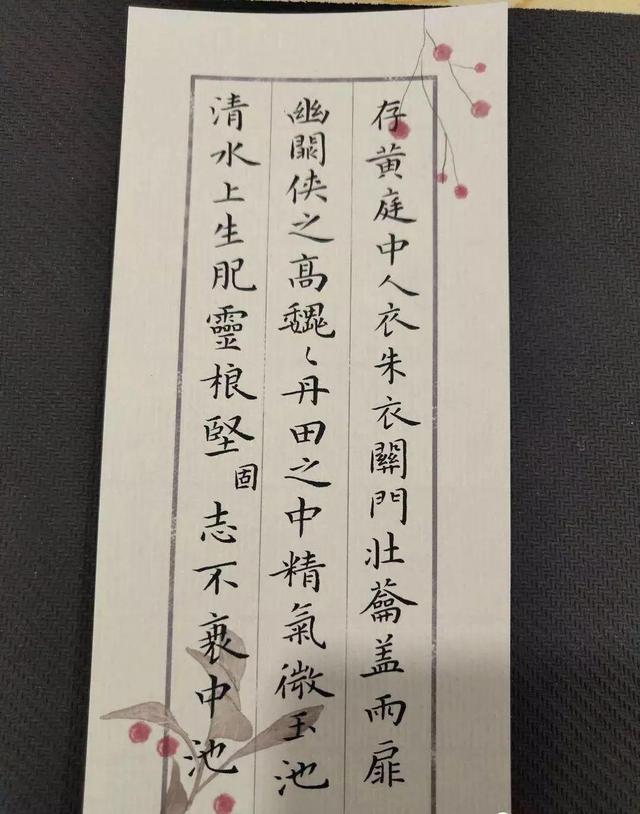 存黄庭中人衣朱衣關門壯蘥盖兩扉
幽闕侠之高巍〻丹田之中精氣微玉池
清水上生肥靈根堅固志不衰中池